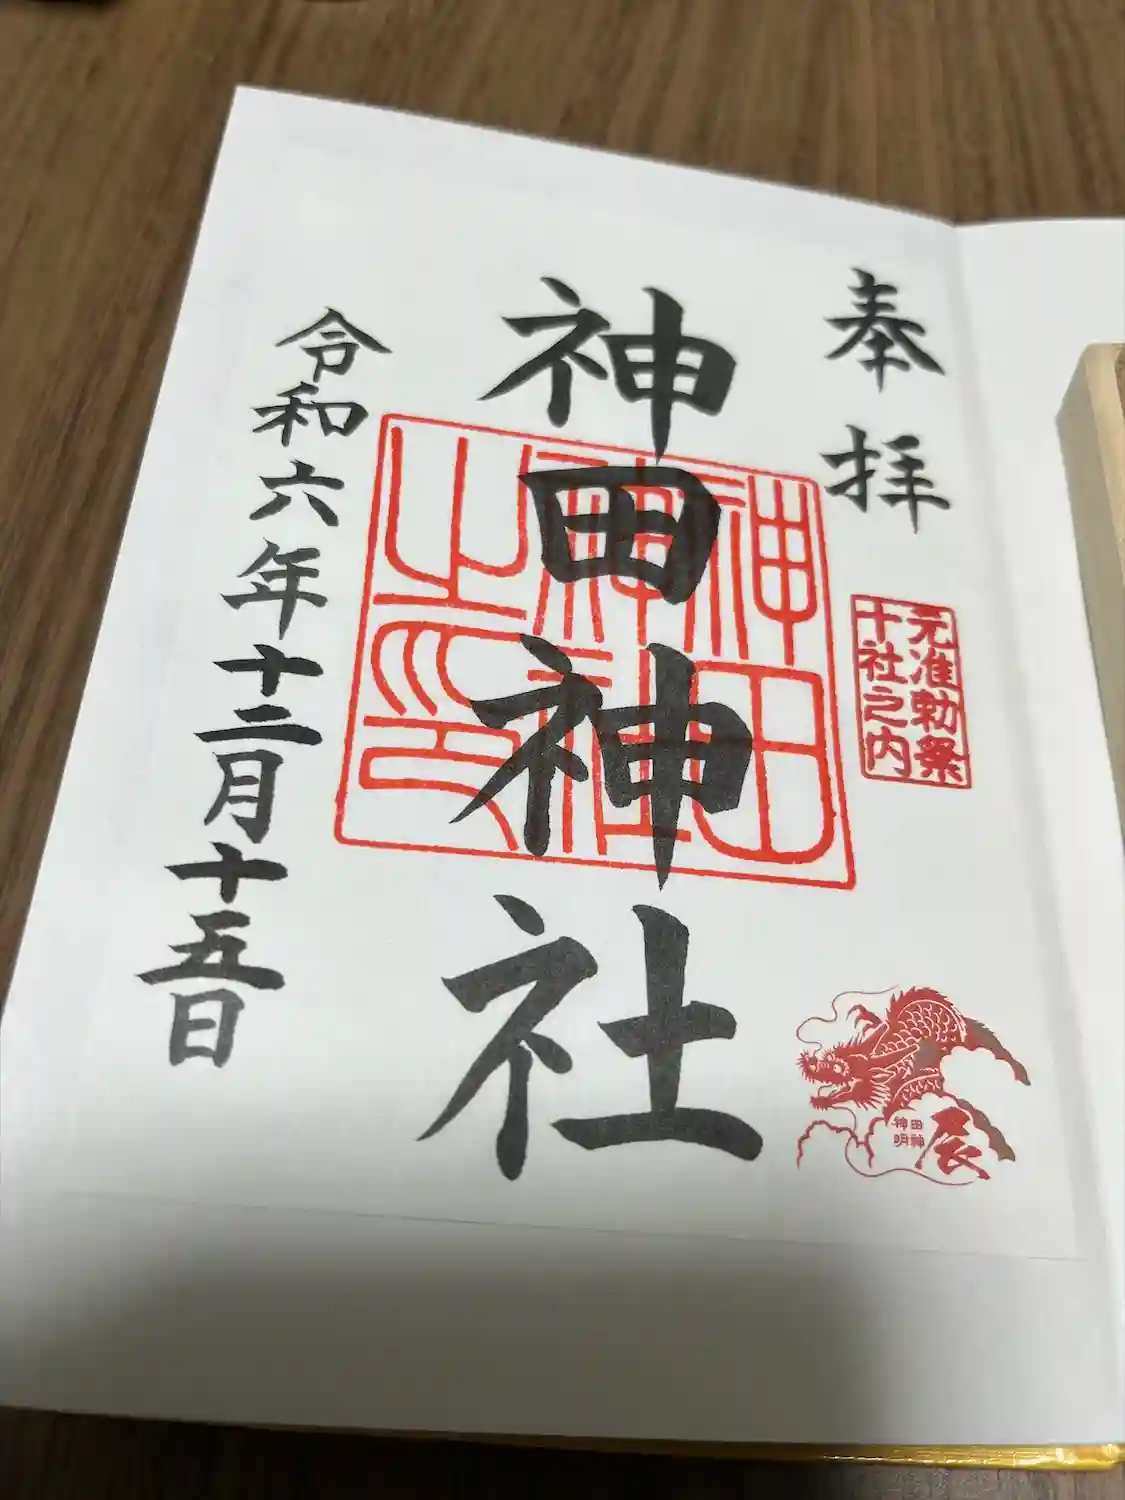 奉拝
元准勅祭
十社之内
神田神社
神田
神社
之印
辰
神田
明神
令和六年十二月十五日